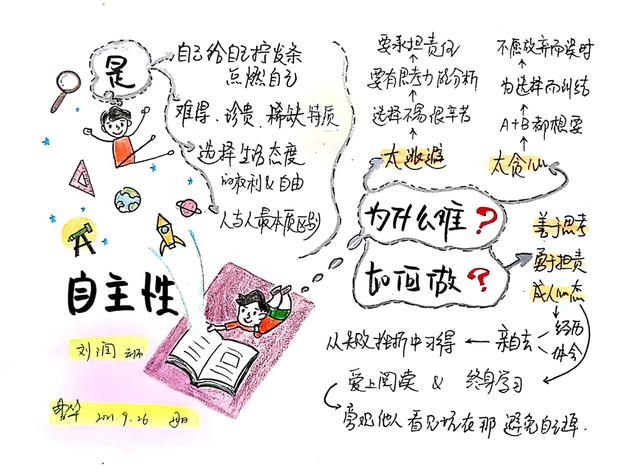 是
自己给自己拧发条
点燃自己
难得、珍贵、稀缺特质
选择生活态度
的权利&自由
人与人最本质区别
自主性
刘润
2021.9.26
要承担责任
要有思考力的分析
选择不易很辛苦
太逃避
不愿放弃而误时
为选择而纠结
A+B都想要
太贪心
为什么难?
如何做?
善于思考
勇于担责
成人心态
经历
体会
亲自去
从失败挫折中习得
爱上阅读 & 终身学习
旁观他人 看见坑在那 避免自己踩.